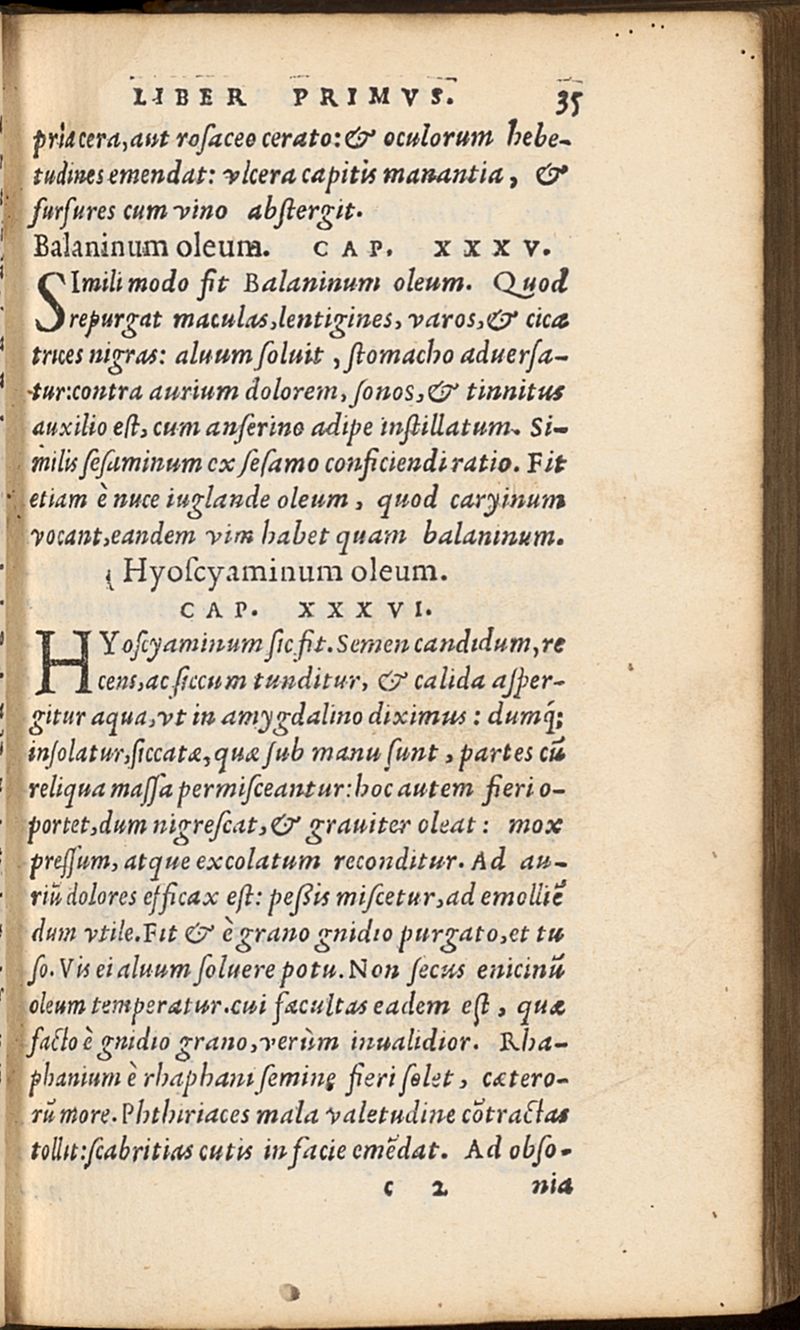 LIBER PRIMVS. 35
pria cera, aut rosaceo cerato: & oculorum hebe-
tudines emendat: vlcera capitis manantia, &
furfures cum vino abstergit.
Balaninum oleum. CAP. XXXV.
SImili modo fit Balaninum oleum. Quod
repurgat maculas, lentigines, varos, & cica
trices nigras: aluum soluit, stomacho aduersa-
tur: contra aurium dolorem, sonos, & tinnitus
auxilio est, cum anserino adipe instillatum. Si-
milis sesaminum ex sesamo conficiendi ratio. Fit
etiam è nuce iuglande oleum, quod caryinum
vocant, eandem vim habet quam balaninum.
Hyoscyaminum oleum.
CAP. XXXVI.
HYoscyaminum sic fit. Semen candidum, re
cens, ac siccum tunditur, & calida asper-
gitur aqua, vt in amygdalino diximus: dumq́;
insolatur, siccatæ, quæ sub manu sunt, partes cū
reliqua massa permisceantur: hoc autem fieri o-
portet, dum nigrescat, & grauiter oleat: mox
pressum, atque excolatum reconditur. Ad au-
riū dolores efficax est: pessis miscetur, ad emolliē
dum vtile. Fit & è grano gnidio purgato, et tu
so. Vis ei aluum soluere potu. Non secus enicinū
oleum temperatur. cui facultas eadem est, quæ
facto è gnidio grano, verùm inualidior. Rha-
phanium è rhaphani semine fieri solet, cætero-
rū more. Phthiriaces mala valetudine cōtractas
tollit: scabritias cutis in facie emēdat. Ad obso-
c 2 nia